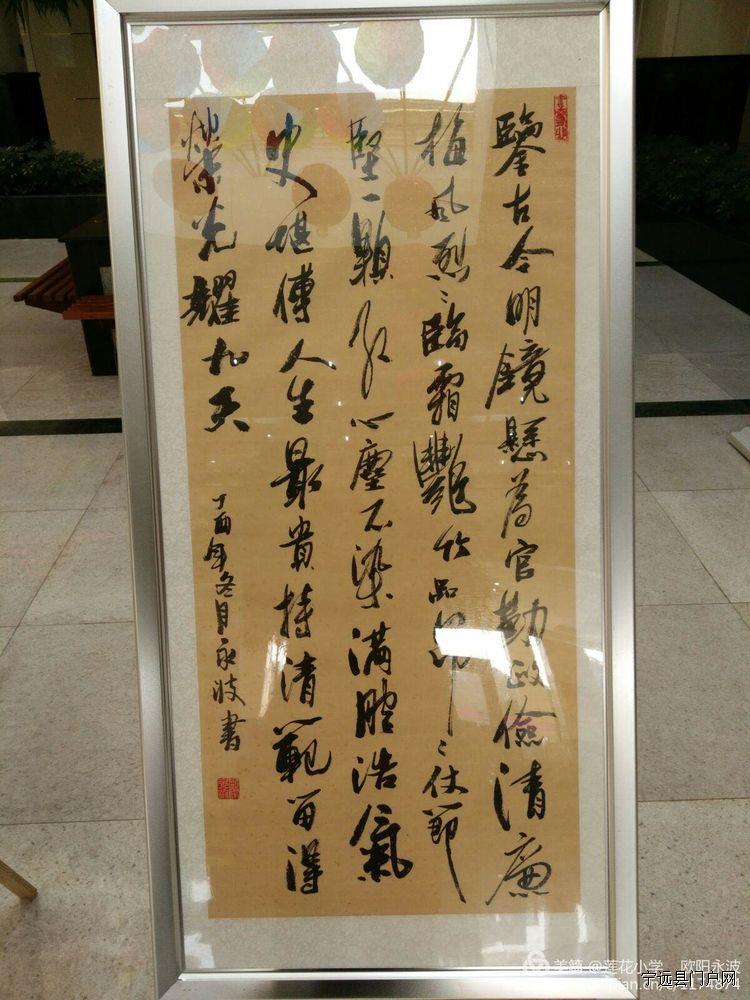 鑒古今明鏡懸為官勤政儉清廉
梅風烈々臨霜艷竹品昂々仗節
堅一顆紅心塵不染滿腔浩氣
史堪傳人生最貴持清範留得
榮光耀九天
丁酉年冬月永波書
美篇 @莲花小学 欧阳永波
宁远县门户网